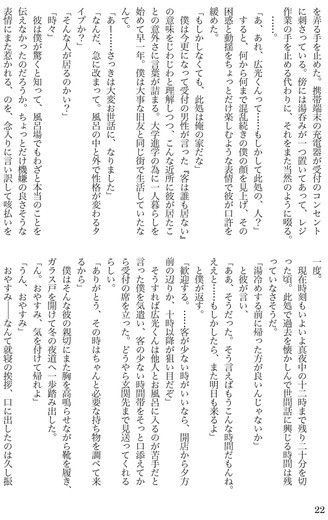 を弄る手を止めた。携帯端末の充電器が受付のコンセント
に刺さっている。傍には湯呑みが一つ置いてあって、レジ
作業の手を止める代わりに、それをまた当然のように啜る。
「……」
「あ、あれ、広光くんって……もしかして此処の、人？」
すると、何から何まで混乱続きの僕の顔を見上げ、その
困惑と動揺をちょっとだけ楽しむような表情で彼が口許を
緩めた。
「もしかしなくても、此処は俺の家だな」
僕は今更になって受付の男性が言った『今は誰も居ない』
の意味をじわじわと理解しつつ、こんな近所に彼が居たこ
との意外さに言葉が詰まる。大学進学の為に一人暮らしを
始めて早一年。僕は大事な旧友と同じ街で生活していたな
んて。
「あー……さっきは大変お世話に、なりました」
「なんだ、急に改まって。風呂の中と外で性格が変わるタ
イプか？」
「そんな人が居るのかい？」
「時々」
彼は僕が驚くと知って、風呂場でもわざと本当のことを
伝えなかったのだろうか。ちょっとだけ機嫌の良さそうな
表情にまた惹かれる、のを、念入りに言い訳して咳払いを
一度。
現在時刻もいよいよ真夜中の十二時まで残り二十分を切
った頃。此処で過去を懐かしんで世間話に興じる時間は残
っていなさそうだ。
「湯冷めする前に帰った方が良いんじゃないか」
と彼が言い、
「ああ、そうだった。そう言えばもうこんな時間だもんね。
ええと……もしかしたら、また明日も来るよ」
と僕が返す。
「歓迎する。……客が少ない時がいいなら、開店から夕方
前の辺りか、十時以降が狙い目だぞ」
そうすれば広光くんは他人とお風呂に入るのが苦手だと
言った僕を気遣い、客の少ない時間帯をそっと口添えてか
ら受付の席を立った。どうやら玄関先まで見送ってくれる
らしい。
「ありがとう。その時はちゃんと必要な持ち物を調べて来
るから」
僕はそんな彼の親切にまた胸を高鳴らせながら靴を履き、
ガラス戸を開けて冬の夜道へ一歩踏み出した。
「ん、おやすみ、気を付けて帰れよ」
「うん、おやすみ」
おやすみ――なんて就寝の挨拶、口に出したのは久し振
22